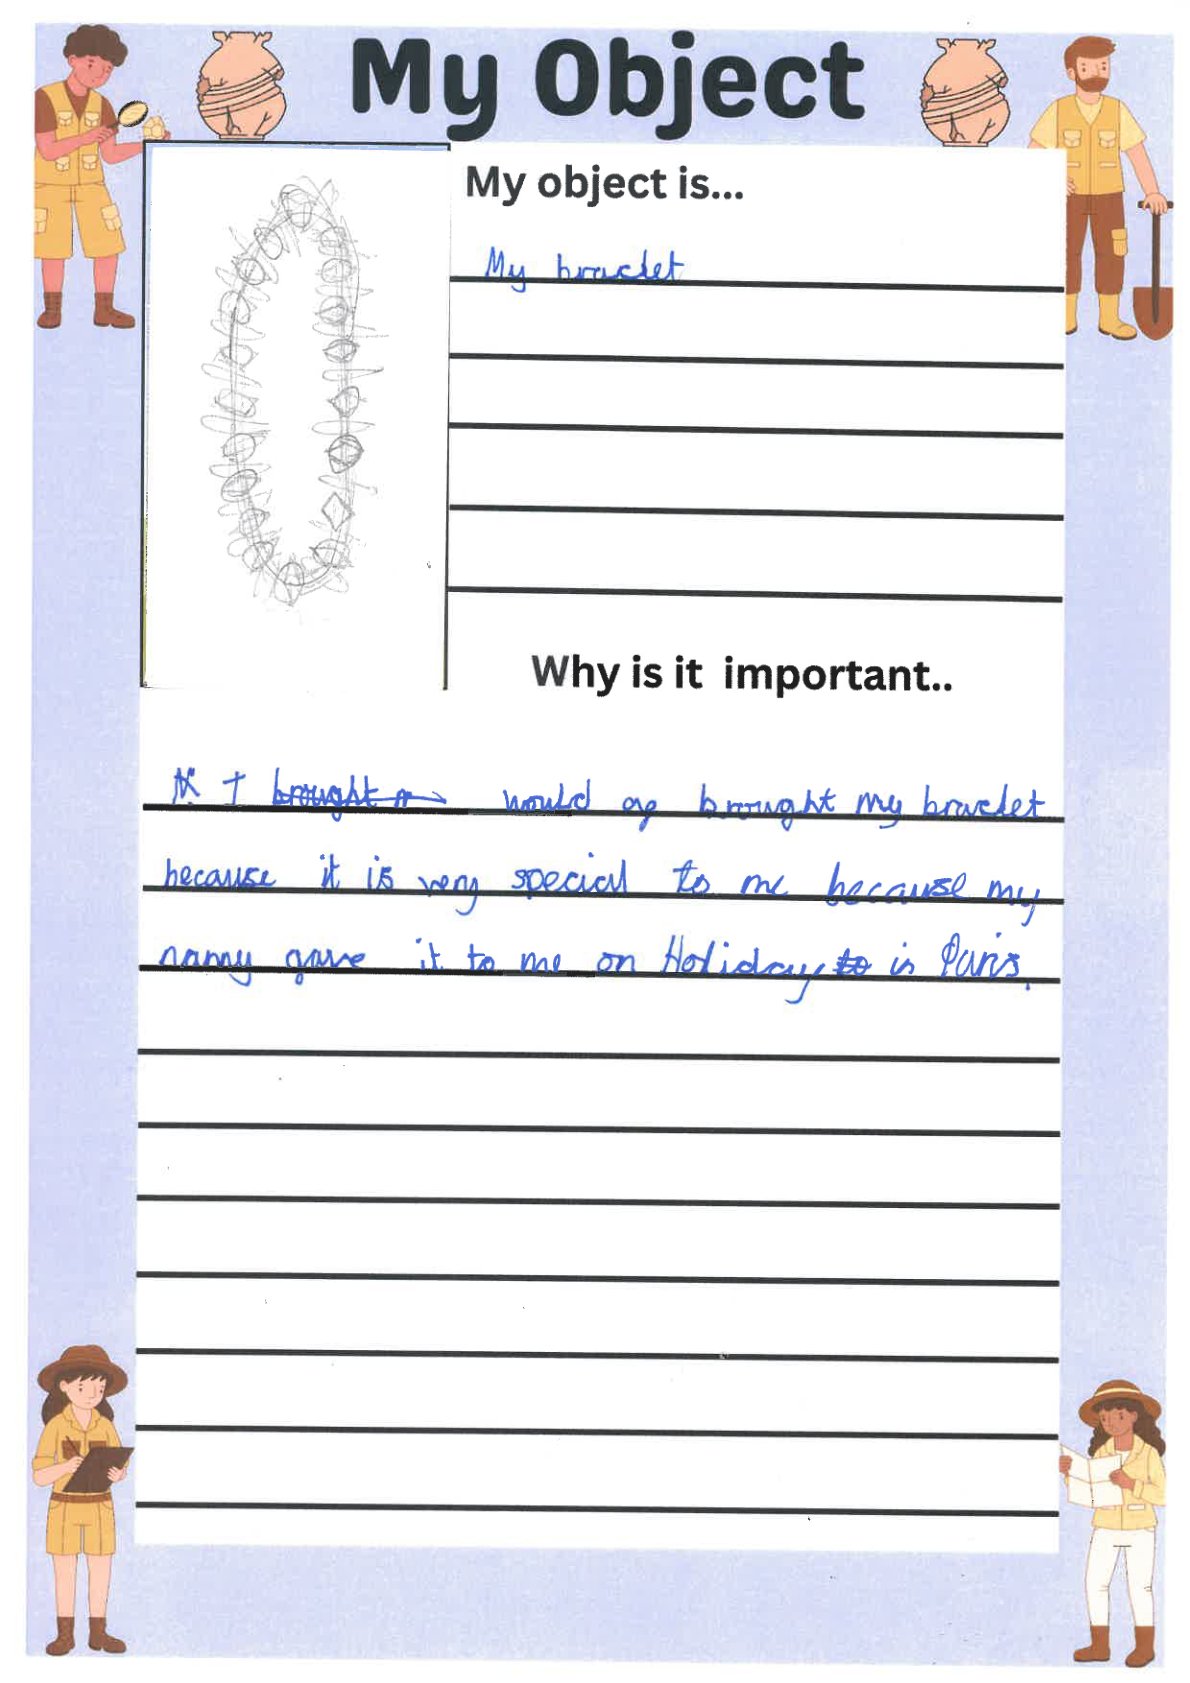 My Object
My object is...
My braclet
Why is it important..
I brought would brought my braclet
because it is very special to me because my
nanny gave it to me on Holiday to in Paris.